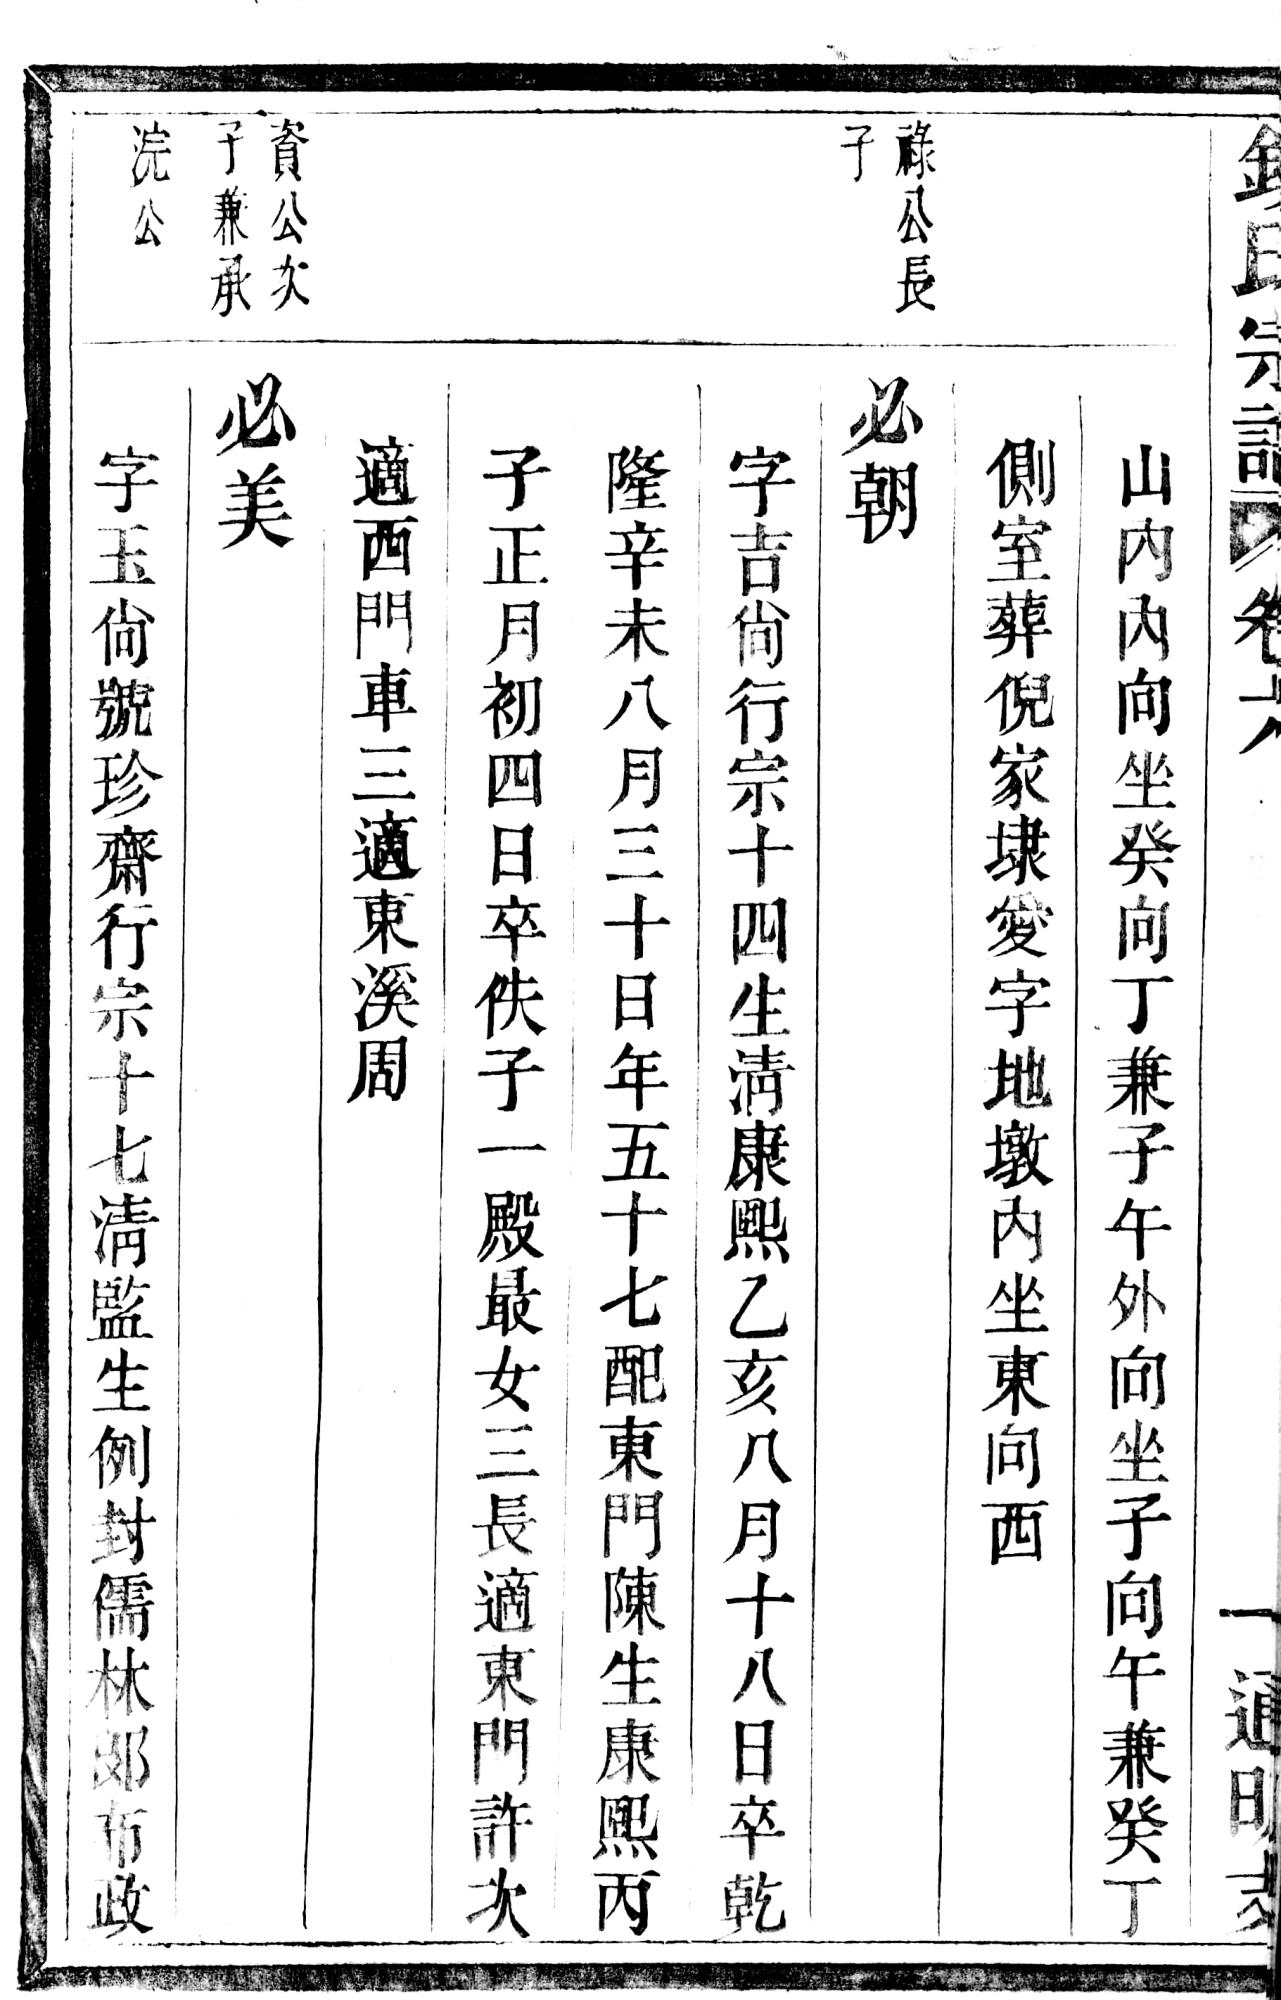 錢氏宗譜 卷六 一 通明支
山內內向坐癸向丁兼子午外向坐子向午兼癸丁
側室葬倪家埭愛字地墩內坐東向西
祿公長
子
必朝
字吉尙行宗十四生淸康熙乙亥八月十八日卒乾
隆辛未八月三十日年五十七配東門陳生康熙丙
子正月初四日卒佚子一殿最女三長適東門許次
適西門車三適東溪周
資公次
子兼承
浣公
必美
字玉尙號珍齋行宗十七淸監生例封儒林郎布政